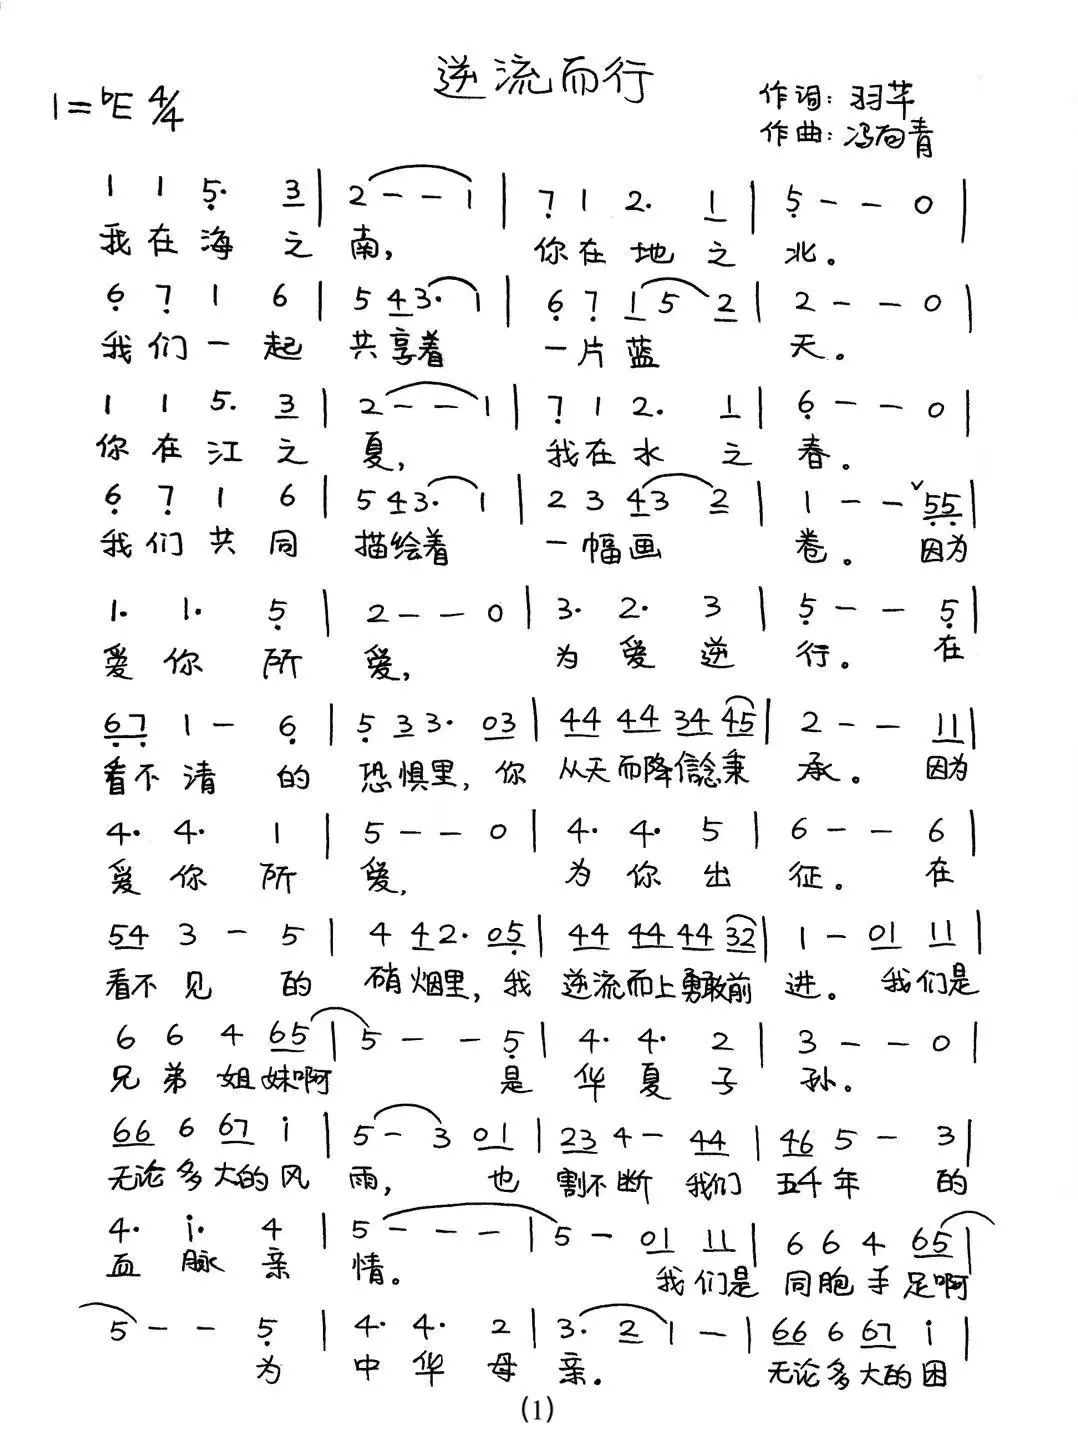 逆流而行
1=♭E 4/4
作词:羽芊
作曲:冯向青
1 1 5̣· 3 | 2 - - 1 | 7̣ 1 2· 1 | 5̣ - - 0 |
我在海之南, 你在地之北。
6̣ 7̣ 1 6 | 5 43· 1 | 6̣ 7̣ 1 5 2 | 2 - - 0 |
我们一起 共享着 一片蓝 天。
1 1 5· 3 | 2 - - 1 | 7̣ 1 2· 1 | 6̣ - - 0 |
你在江之夏, 我在水之春。
6̣ 7̣ 1 6 | 5 43· 1 | 2 3 43 2 | 1 - - ˅ 5̣5̣ |
我们共同 描绘着 一幅画 卷。 因为
1· 1· 5̣ | 2 - - 0 | 3· 2· 3 | 5̣ - - 5̣ |
爱你所爱, 为爱逆行。 在
6̣7̣ 1 - 6̣ | 5̣ 33· 03 | 44 44 34 45 | 2 - - 11 |
看不清的 恐惧里, 你 从天而降信念秉 承。 因为
4· 4· 1 | 5 - - 0 | 4· 4· 5 | 6 - - 6 |
爱你所爱, 为你出征。 在
54 3 - 5 | 4 42· 05̣ | 44 44 44 32 | 1 - 01 11 |
看不见的 硝烟里, 我 逆流而上勇敢前 进。 我们是
6 6 4 65 | 5 - - 5̣ | 4· 4· 2 | 3 - - 0 |
兄弟姐妹啊 是华夏子孙。
66 6 67 i | 5 - 3 01 | 23 4 - 44 | 46 5 - 3 |
无论多大的风 雨, 也 割不断 我们 五千年 的
4· i· 4 | 5 - - - | 5 - 01 11 | 6 6 4 65 |
血脉亲 情。 我们是 同胞手足啊
5 - - 5̣ | 4· 4· 2 | 3· 2 1 - | 66 6 67 i |
为 中华母 亲。 无论多大的困
(1)